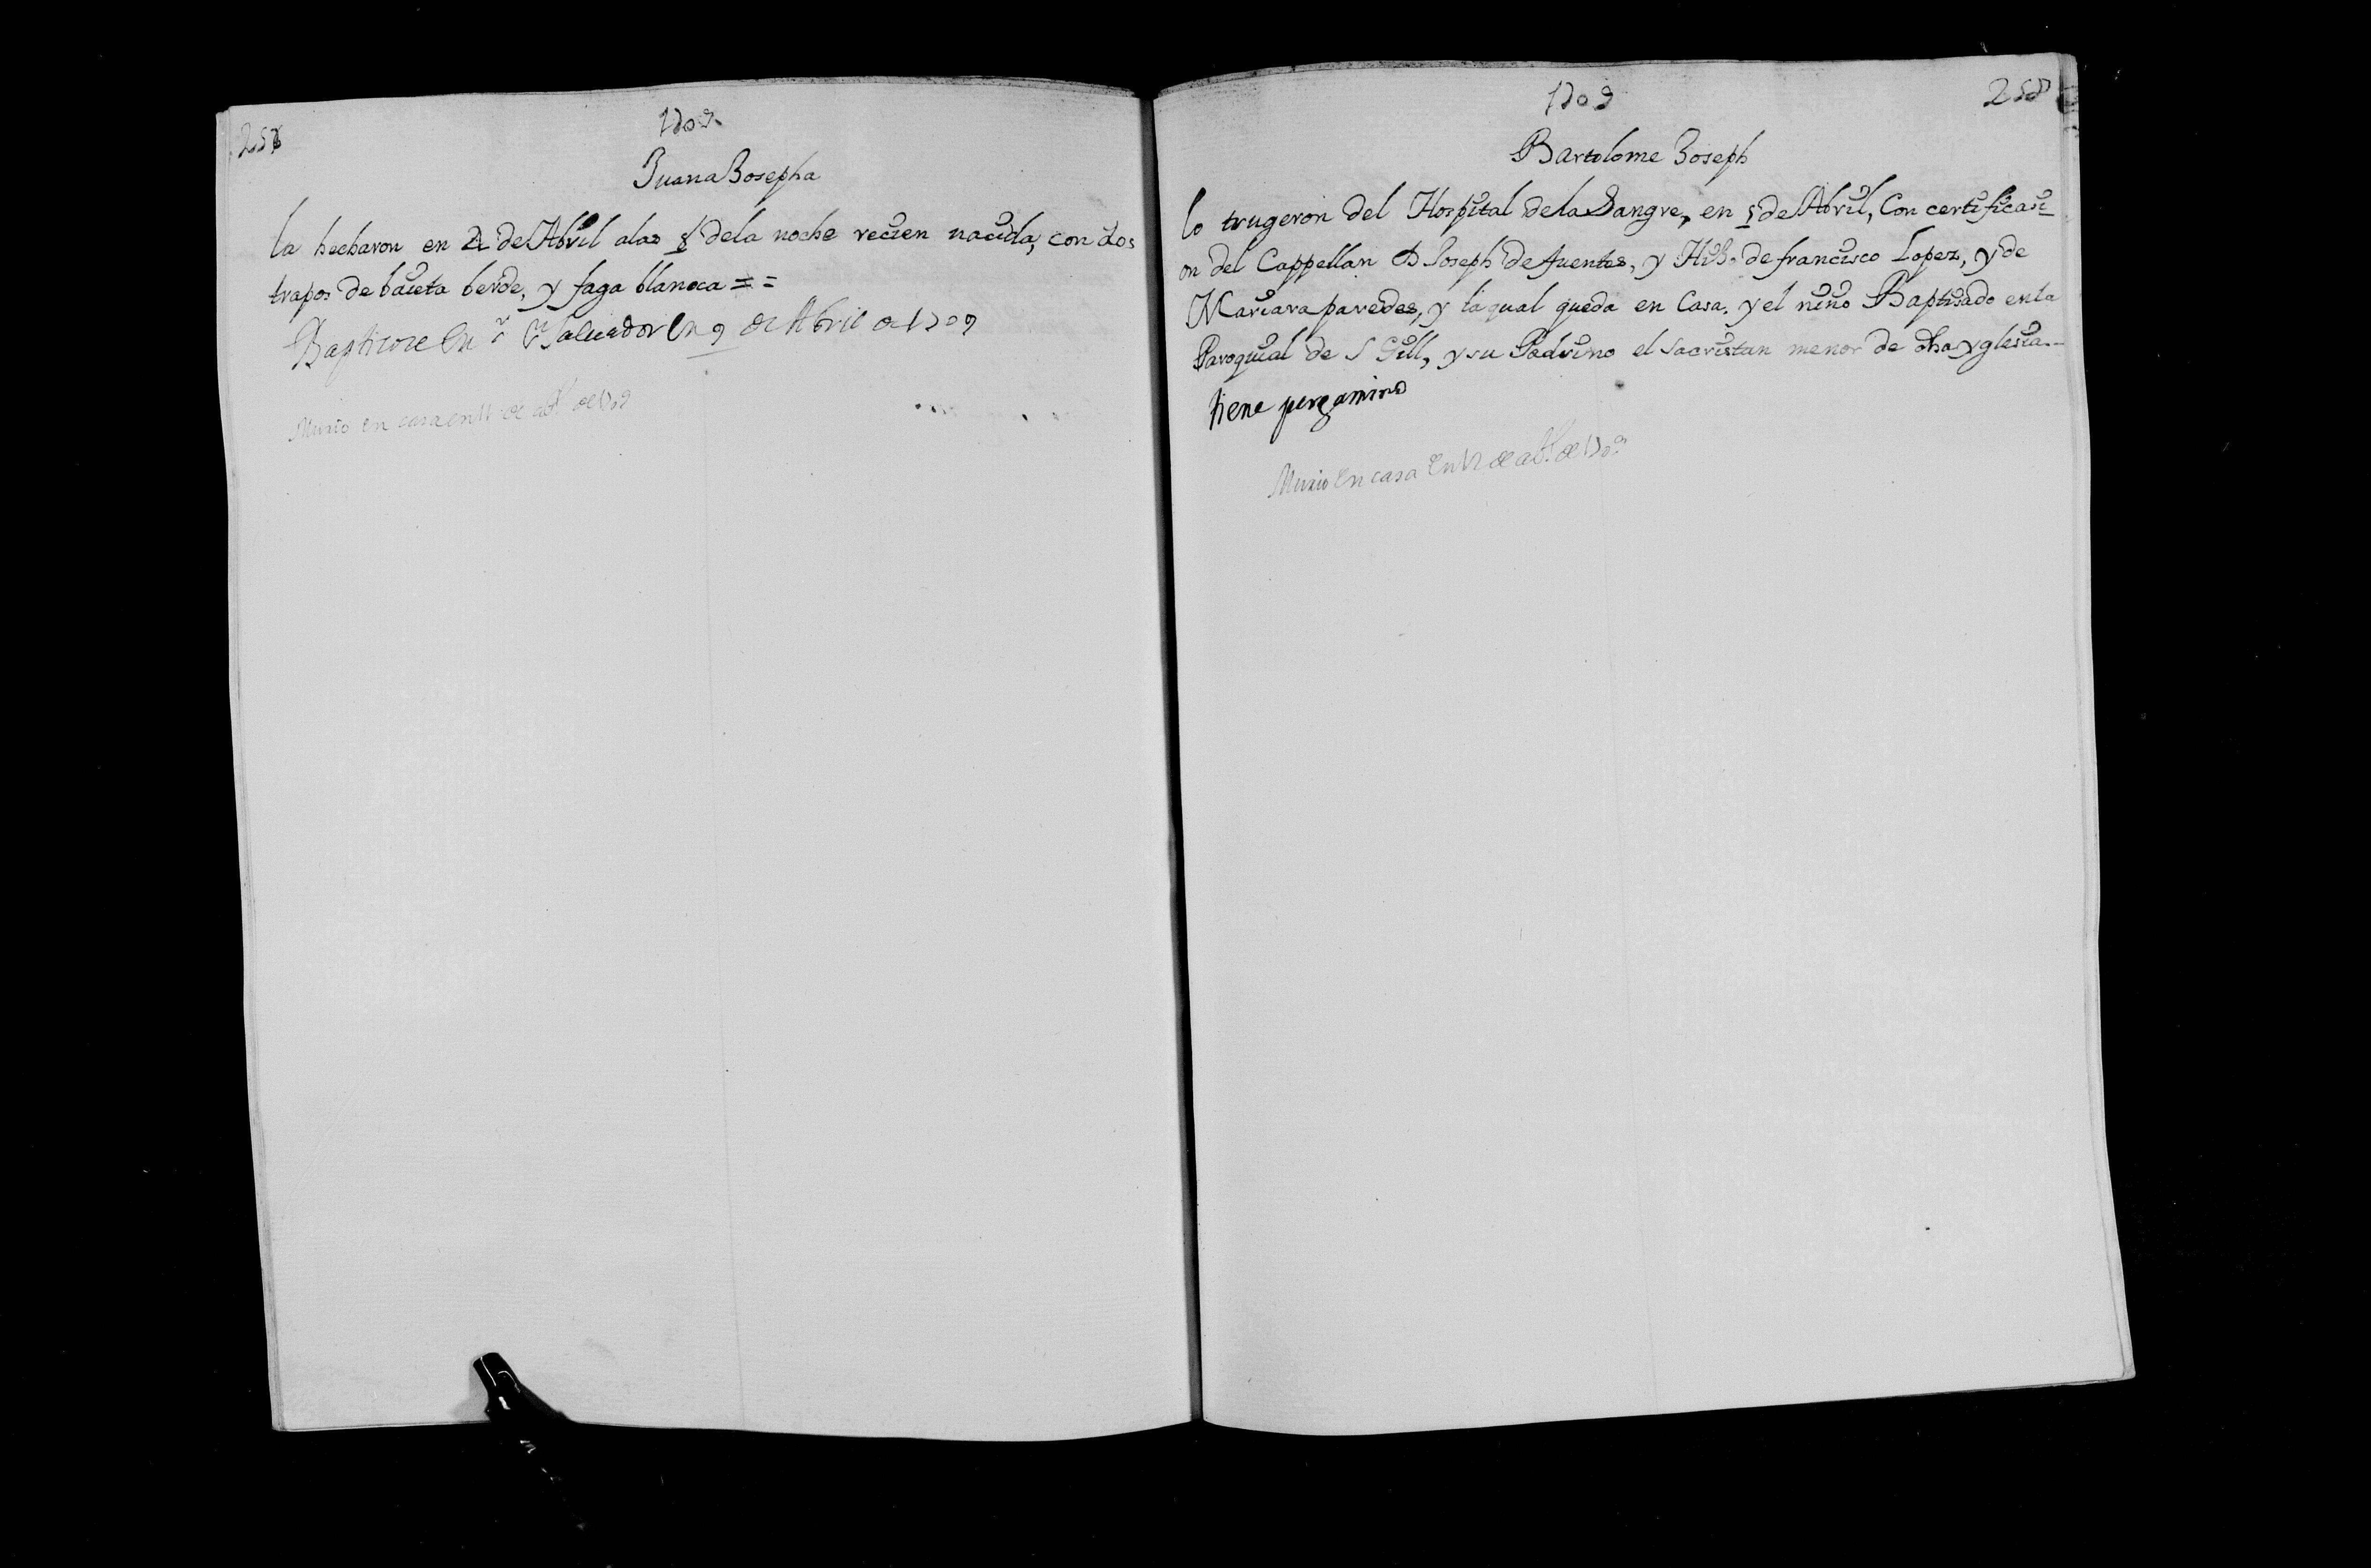 257
1709
Juana Josepha
la hecharon en de Abril alas 8 dela noche recien nacida, con dos
trapos de baieta berde, y faga blanca = =
Baptizose en Salvador en 9 de Abril de 1709
Murio en casa en 11 de abl de 1709
1709
258
Bartolome Joseph
lo trugeron del Hospital dela Sangre, en 5 de Abril, Con certificasi
on del Cappellan D Joseph de fuentes, y Hijo de francisco Lopez, y de
Mariana paredes, y la qual queda en Casa. y el niño Baptisado en la
Paroquial de S Gill, y su Padrino el sacristan menor de dha yglesia
tiene pergamino
Murio en casa en 12 de abl de 1709